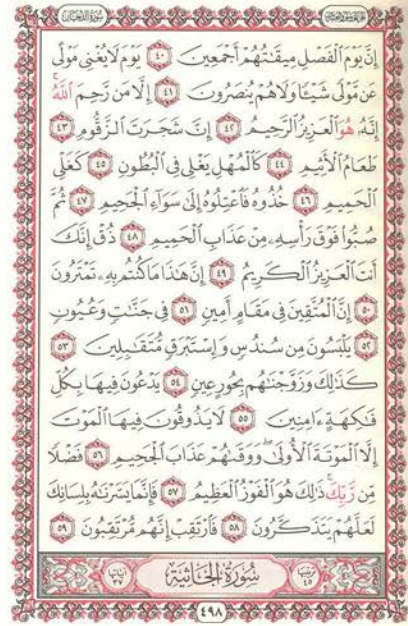 سُورَةُ الدُّخَانِ
إِنَّ يَوْمَ ٱلْفَصْلِ مِيقَٰتُهُمْ أَجْمَعِينَ ٤٠ يَوْمَ لَا يُغْنِى مَوْلًى
عَن مَّوْلًى شَيْـًٔا وَلَا هُمْ يُنصَرُونَ ٤١ إِلَّا مَن رَّحِمَ ٱللَّهُ ۚ
إِنَّهُۥ هُوَ ٱلْعَزِيزُ ٱلرَّحِيمُ ٤٢ إِنَّ شَجَرَتَ ٱلزَّقُّومِ ٤٣
طَعَامُ ٱلْأَثِيمِ ٤٤ كَٱلْمُهْلِ يَغْلِى فِى ٱلْبُطُونِ ٤٥ كَغَلْىِ
ٱلْحَمِيمِ ٤٦ خُذُوهُ فَٱعْتِلُوهُ إِلَىٰ سَوَآءِ ٱلْجَحِيمِ ٤٧ ثُمَّ
صُبُّوا۟ فَوْقَ رَأْسِهِۦ مِنْ عَذَابِ ٱلْحَمِيمِ ٤٨ ذُقْ إِنَّكَ
أَنتَ ٱلْعَزِيزُ ٱلْكَرِيمُ ٤٩ إِنَّ هَٰذَا مَا كُنتُم بِهِۦ تَمْتَرُونَ
٥٠ إِنَّ ٱلْمُتَّقِينَ فِى مَقَامٍ أَمِينٍ ٥١ فِى جَنَّٰتٍ وَعُيُونٍ
٥٢ يَلْبَسُونَ مِن سُندُسٍ وَإِسْتَبْرَقٍ مُّتَقَٰبِلِينَ ٥٣
كَذَٰلِكَ وَزَوَّجْنَٰهُم بِحُورٍ عِينٍ ٥٤ يَدْعُونَ فِيهَا بِكُلِّ
فَٰكِهَةٍ ءَامِنِينَ ٥٥ لَا يَذُوقُونَ فِيهَا ٱلْمَوْتَ
إِلَّا ٱلْمَوْتَةَ ٱلْأُولَىٰ ۖ وَوَقَىٰهُمْ عَذَابَ ٱلْجَحِيمِ ٥٦ فَضْلًا
مِّن رَّبِّكَ ۚ ذَٰلِكَ هُوَ ٱلْفَوْزُ ٱلْعَظِيمُ ٥٧ فَإِنَّمَا يَسَّرْنَٰهُ بِلِسَانِكَ
لَعَلَّهُمْ يَتَذَكَّرُونَ ٥٨ فَٱرْتَقِبْ إِنَّهُم مُّرْتَقِبُونَ ٥٩
ترتيبها ٤٥ سُورَةُ الجَاثِيَةِ آياتها ٣٧
٤٩٨